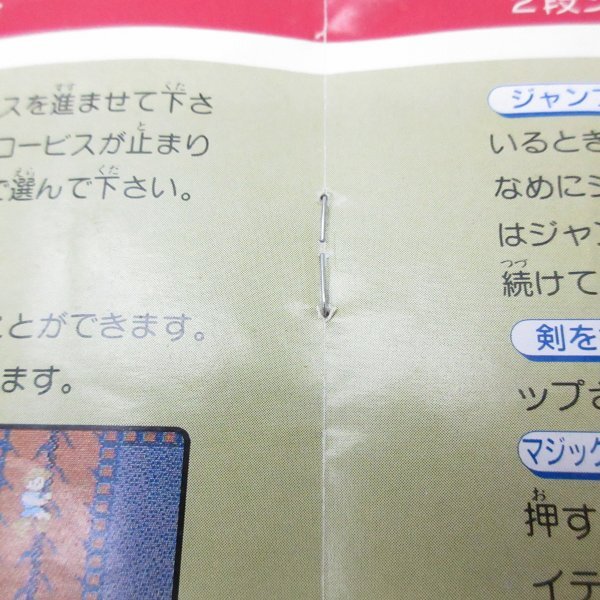 スを進ませて下さ
コービスが止まり
で選んで下さい。
ことができます。
ます。
2段ジ
ジャンプ
いるとき
なめにジ
はジャン
続けて
剣を
ップさ
マジック
押す
イテ